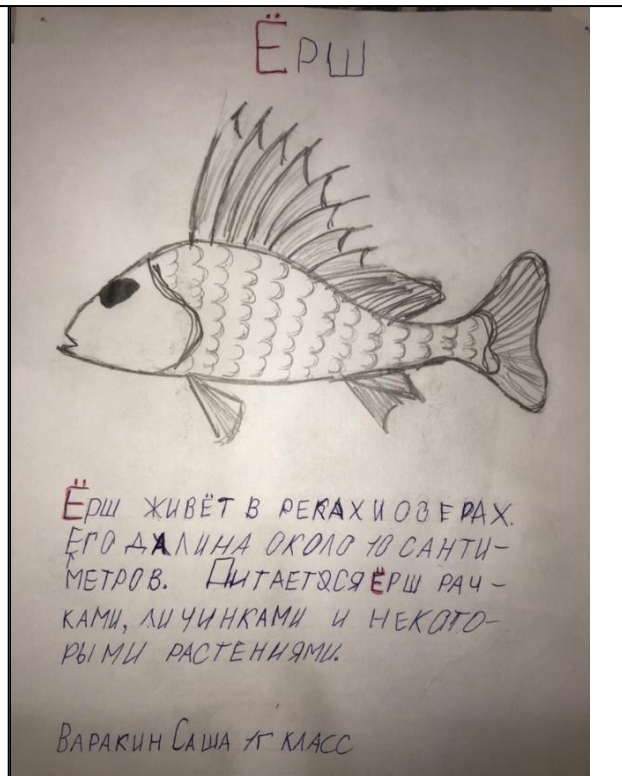 Ёрш
Ёрш живёт в реках и озерах.
Его длина около 10 санти-
метров. Питается ёрш рач-
ками, личинками и некото-
рыми растениями.
Варакин Саша 1г класс